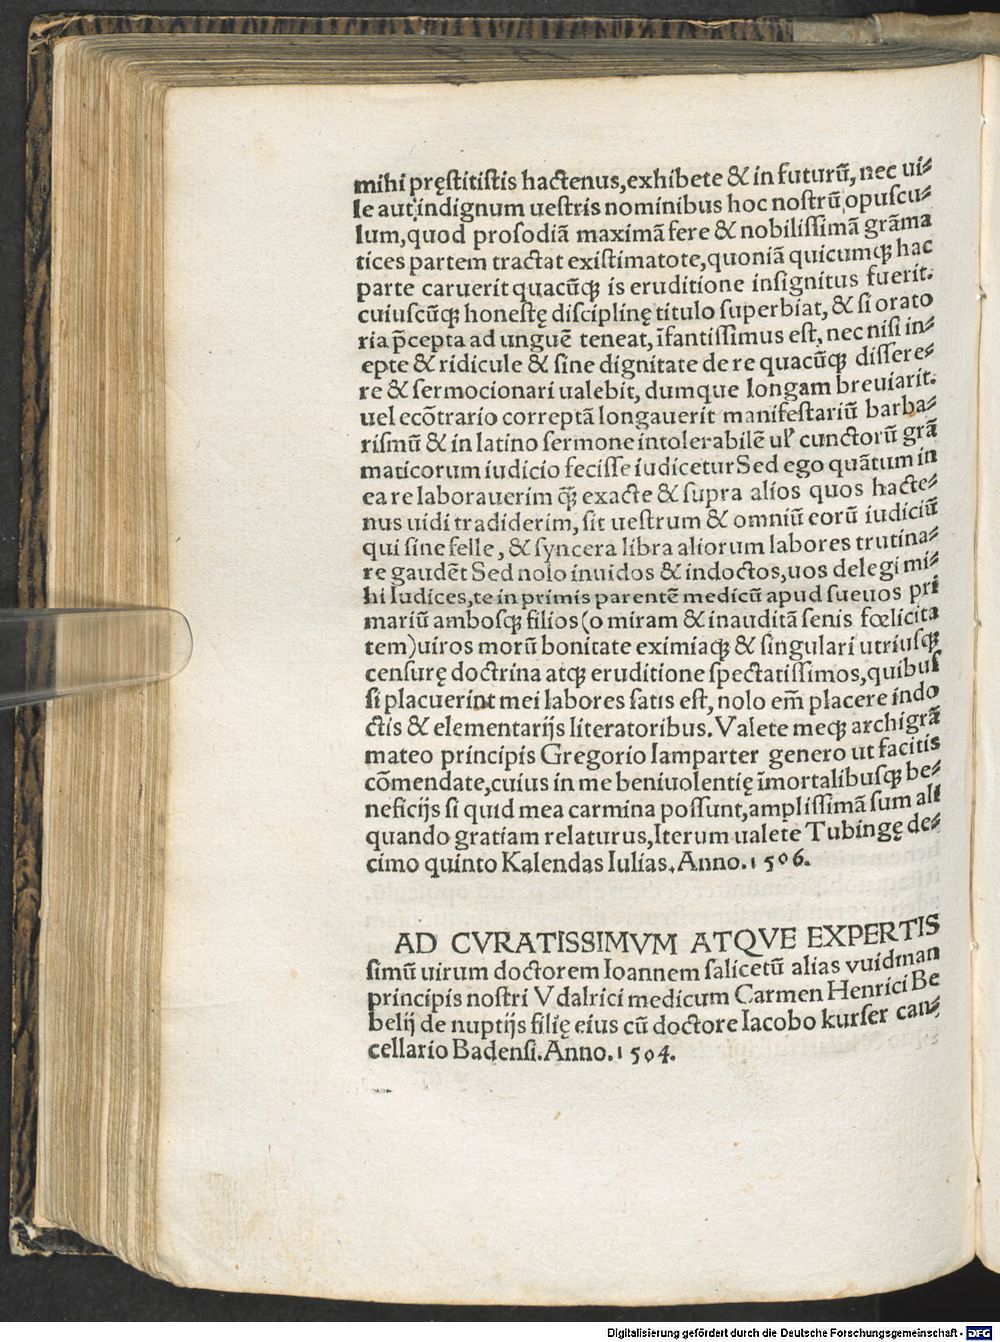 mihi pręstitistis hactenus, exhibete & in futurũ, nec ui⸗
le aut indignum uestris nominibus hoc nostrũ opuscu⸗
lum, quod prosodiã maximã fere & nobilissimã grãma
tices partem tractat existimatote, quoniã quicumqꝫ hac
parte caruerit quacũqꝫ is eruditione insignitus fuerit.
cuiuscũqꝫ honestę disciplinę titulo superbiat, & si orato
ria p̃cepta ad unguẽ teneat, ĩfantissimus est, nec nisi in⸗
epte & ridicule & sine dignitate de re quacũqꝫ dissere⸗
re & sermocionari ualebit, dumque longam breuiarit.
uel ecõtrario correptã longauerit manifestariũ barba⸗
rismũ & in latino sermone intolerabilẽ ul' cunctorũ grã
maticorum iudicio fecisse iudicetur Sed ego quãtum in
ea re laborauerim q̃ꝫ exacte & supra alios quos hacte⸗
nus uidi tradiderim, sit uestrum & omniũ eorũ iudiciũ
qui sine felle, & syncera libra aliorum labores trutina⸗
re gaudẽt Sed nolo inuidos & indoctos, uos delegi mi⸗
hi Iudices, te in primis parentẽ medicũ apud sueuos pri
mariũ ambosqꝫ filios (o miram & inauditã senis fœlicita
tem) uiros morũ bonitate eximiaqꝫ & singulari utriusqꝫ
censurę doctrina atqꝫ eruditione spectatissimos, quibus
si placuerint mei labores satis est, nolo em̃ placere indo
ctis & elementarijs literatoribus. Valete meqꝫ archigrã
mateo principis Gregorio lamparter genero ut facitis
cõmendate, cuius in me beniuolentię ĩmortalibusqꝫ be⸗
neficijs si quid mea carmina possunt, amplissimã sum ali
quando gratiam relaturus, Iterum ualete Tubingę de⸗
cimo quinto Kalendas Iulias. Anno. 1506.
AD CVRATISSIMVM ATQVE EXPERTIS
simũ uirum doctorem Ioannem salicetũ alias vuidman
principis nostri Vdalrici medicum Carmen Henrici Be
belij de nuptijs filię eius cũ doctore Iacobo kurser can⸗
cellario Badensi. Anno. 1504.
Digitalisierung gefördert durch die Deutsche Forschungsgemeinschaft - DFG